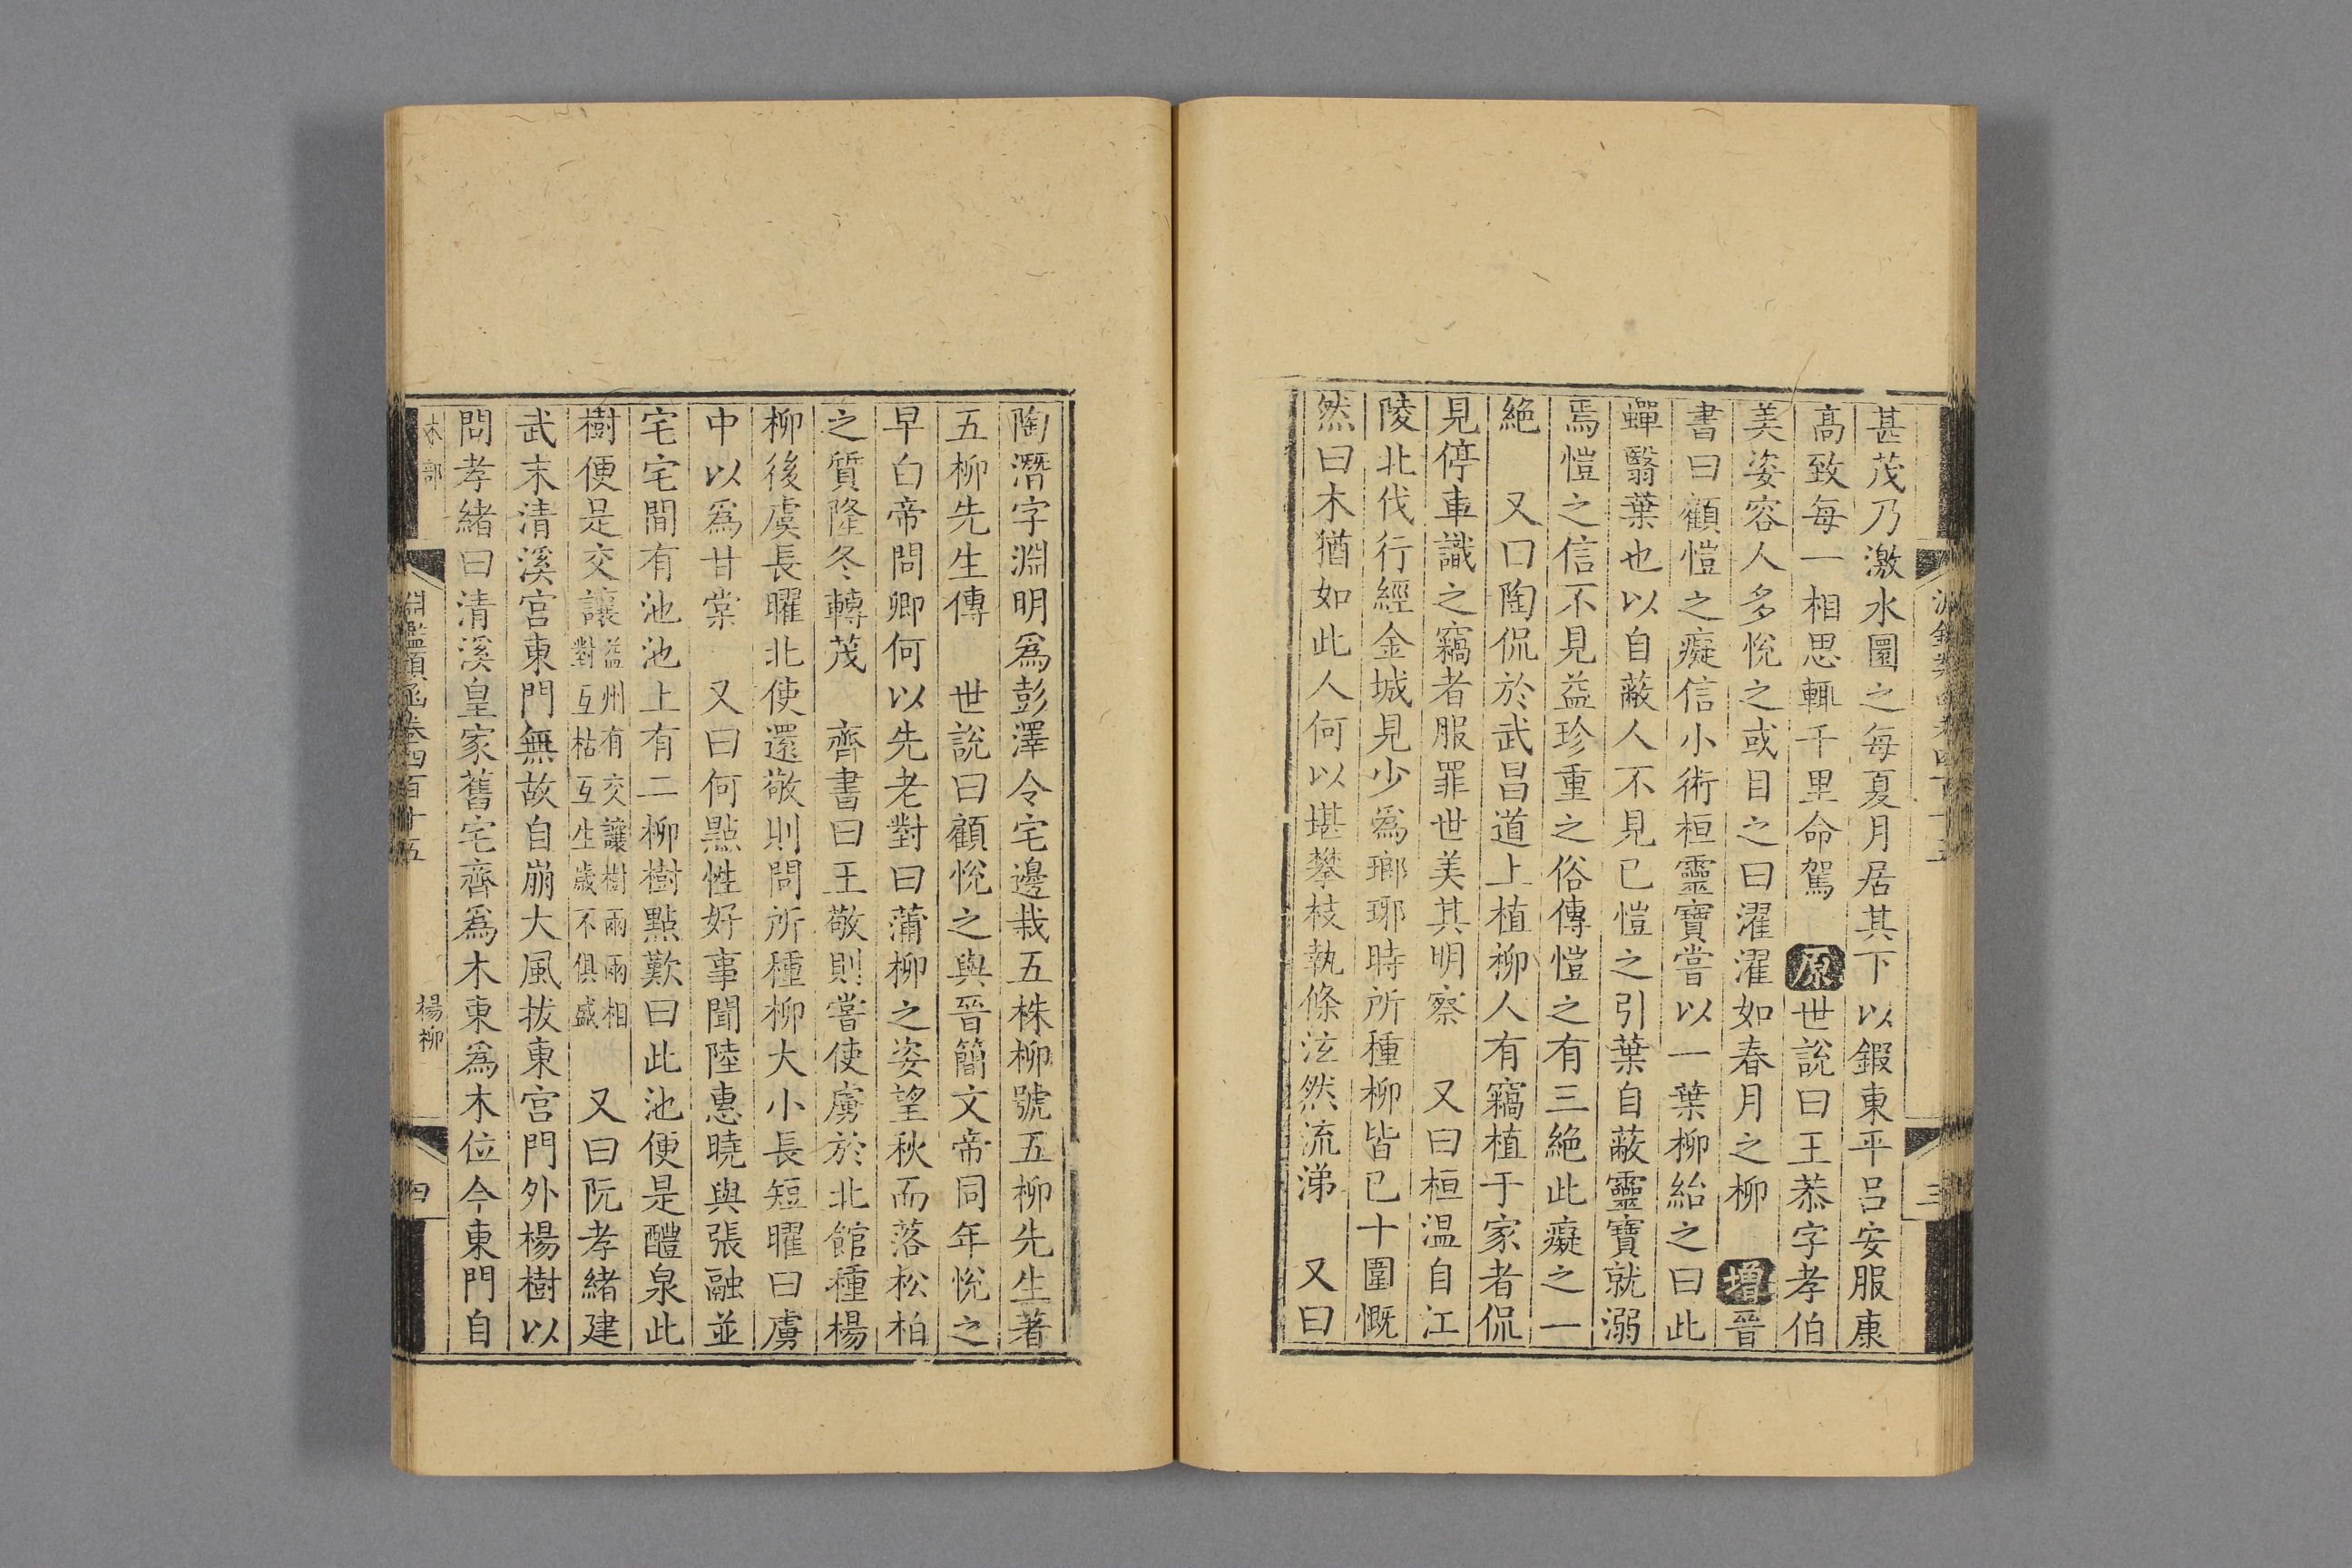 甚茂乃激水圜之每夏月居其下以鍜東平呂安服康
高致每一相思輙千里命駕 原世說曰王恭字孝伯
美姿容人多恱之或目之曰濯濯如春月之柳 增晉
書曰顧愷之癡信小術桓靈寶嘗以一葉柳紿之曰此
蟬翳葉也以自蔽人不見已愷之引葉自蔽靈寶就溺
焉愷之信不見益珍重之俗傳愷之有三絕此癡之一
絕 又曰陶侃於武昌道上植柳人有竊植于家者侃
見停車識之竊者服罪世美其明察 又曰桓温自江
陵北伐行經金城見少爲瑯琊時所種柳皆已十圍慨
然曰木猶如此人何以堪攀枝執條泫然流涕 又曰
三
陶潛字淵明爲彭澤令宅邊栽五株柳號五柳先生著
五柳先生傳 世說曰顧恱之與晉簡文帝同年恱之
早白帝問卿何以先老對曰蒲柳之姿望秋而落松柏
之質隆冬轉茂 齊書曰王敬則嘗使虜於北館種楊
柳後虞長曜北使還敬則問所種柳大小長短曜曰虜
中以爲甘棠 又曰何點性好事聞陸惠曉與張融並
宅宅間有池池上有二柳樹點歎曰此池便是醴泉此
樹便是交讓益州有交讓樹兩兩相對互枯互生歲不俱盛 又曰阮孝緒建
武末清溪宫東門無故自崩大風拔東宫門外楊樹以
問孝緒曰清溪皇家舊宅齊爲木東爲木位今東門自
木部 淵鑑類函卷四百十五 楊栁 四